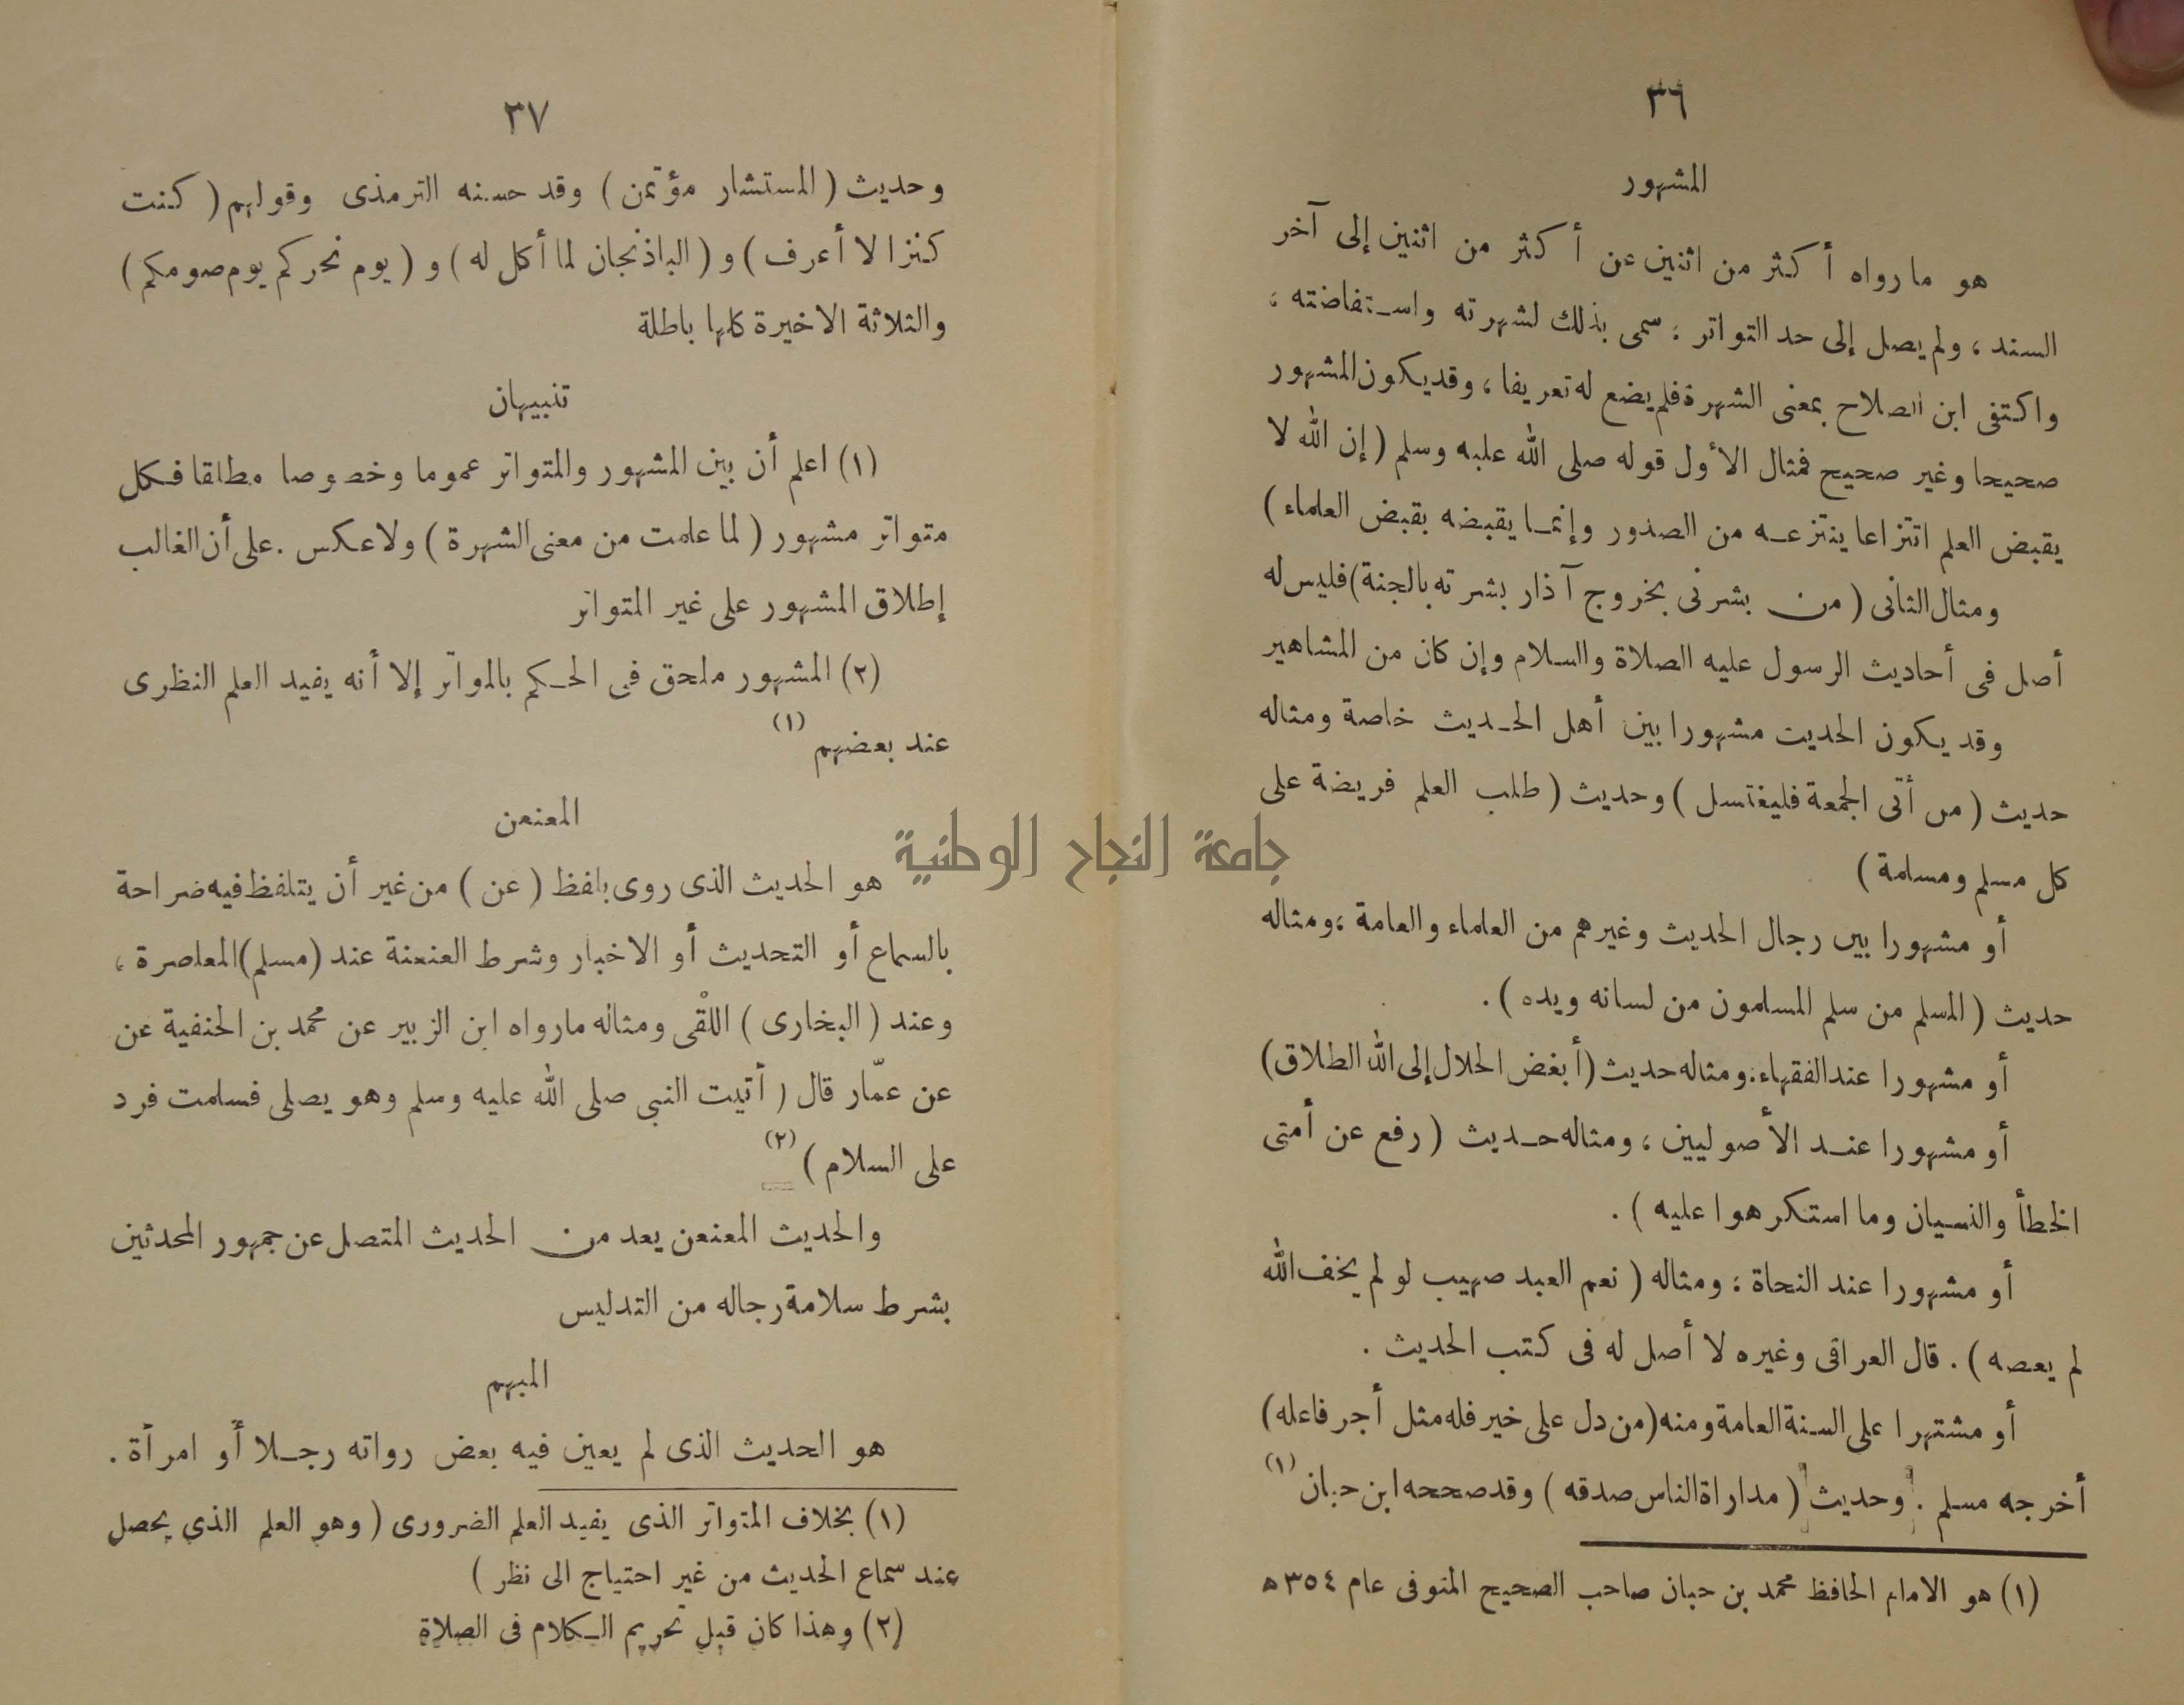 ٣٦
المشهور
هو ما رواه أكثر من اثنين عن أكثر من اثنين إلى آخر
السند ، ولم يصل إلى حد التواتر : سمى بذلك لشهرته واستفاضته ،
واكتفى ابن الصلاح بمعنى الشهرة فلم يضع له تعريفا ، وقد يكون المشهور
صحيحا وغير صحيح فمثال الأول قوله صلى الله عليه وسلم ( إن الله لا
يقبض العلم انتزاعا ينتزعه من الصدور وإنما يقبضه بقبض العلماء )
ومثال الثانى ( من بشرنى بخروج آذار بشرته بالجنة ) فليس له
أصل فى أحاديث الرسول عليه الصلاة والسلام وإن كان من المشاهير
وقد يكون الحديث مشهورا بين أهل الحديث خاصة ومثاله
حديث ( من أتى الجمعة فليغتسل ) وحديث ( طلب العلم فريضة على
كل مسلم ومسلمة )
أو مشهورا بين رجال الحديث وغيرهم من العلماء والعامة ؛ ومثاله
حديث ( المسلم من سلم المسلمون من لسانه ويده ) .
أو مشهورا عند الفقهاء : ومثاله حديث ( أبغض الحلال إلى الله الطلاق )
أو مشهورا عند الأصوليين ، ومثاله حديث ( رفع عن أمتى
الخطأ والنسيان وما استكرهوا عليه ) .
أو مشهورا عند النحاة : ومثاله ( نعم العبد صهيب لو لم يخف الله
لم يعصه ) . قال العراقى وغيره لا أصل له فى كتب الحديث .
أو مشتهرا على السنة العامة ومنه ( من دل على خير فله مثل أجر فاعله )
أخرجه مسلم . وحديث ( مداراة الناس صدقه ) وقد صححه ابن حبان (١)
(١) هو الامام الحافظ محمد بن حبان صاحب الصحيح المتوفى عام ٣٥٤ ه
٣٧
وحديث ( المستشار مؤتمن ) وقد حسنه الترمذى وقولهم ( كنت
كنزا لا أعرف ) و ( الباذنجان لما أكل له ) و ( يوم نحركم يوم صومكم )
والثلاثة الاخيرة كلها باطلة
تنبيهان
(١) اعلم أن بين المشهور والمتواتر عموما وخصوصا مطلقا فكل
متواتر مشهور ( لما علمت من معنى الشهرة ) ولا عكس . على أن الغالب
إطلاق المشهور على غير المتواتر
(٢) المشهور ملحق فى الحكم بالمواتر إلا أنه يفيد العلم النظرى
عند بعضهم (١)
المعنعن
هو الحديث الذى روى بلفظ ( عن ) من غير أن يتلفظ فيه صراحة
بالسماع أو التحديث أو الاخبار وشرط العنعنة عند ( مسلم ) المعاصرة ،
وعند ( البخارى ) اللقى ومثاله ما رواه ابن الزبير عن محمد بن الحنفية عن
عن عمّار قال ( أتيت النبى صلى الله عليه وسلم وهو يصلى فسلمت فرد
على السلام ) (٢)
والحديث المعنعن يعد من الحديث المتصل عن جمهور المحدثين
بشرط سلامة رجاله من التدليس
المبهم
هو الحديث الذى لم يعين فيه بعض رواته رجلا أو امرأة .
(١) بخلاف المتواتر الذى يفيد العلم الضرورى ( وهو العلم الذي يحصل
عند سماع الحديث من غير احتياج الى نظر )
(٢) وهذا كان قبل تحريم الكلام فى الصلاة
جامعة النجاح الوطنية